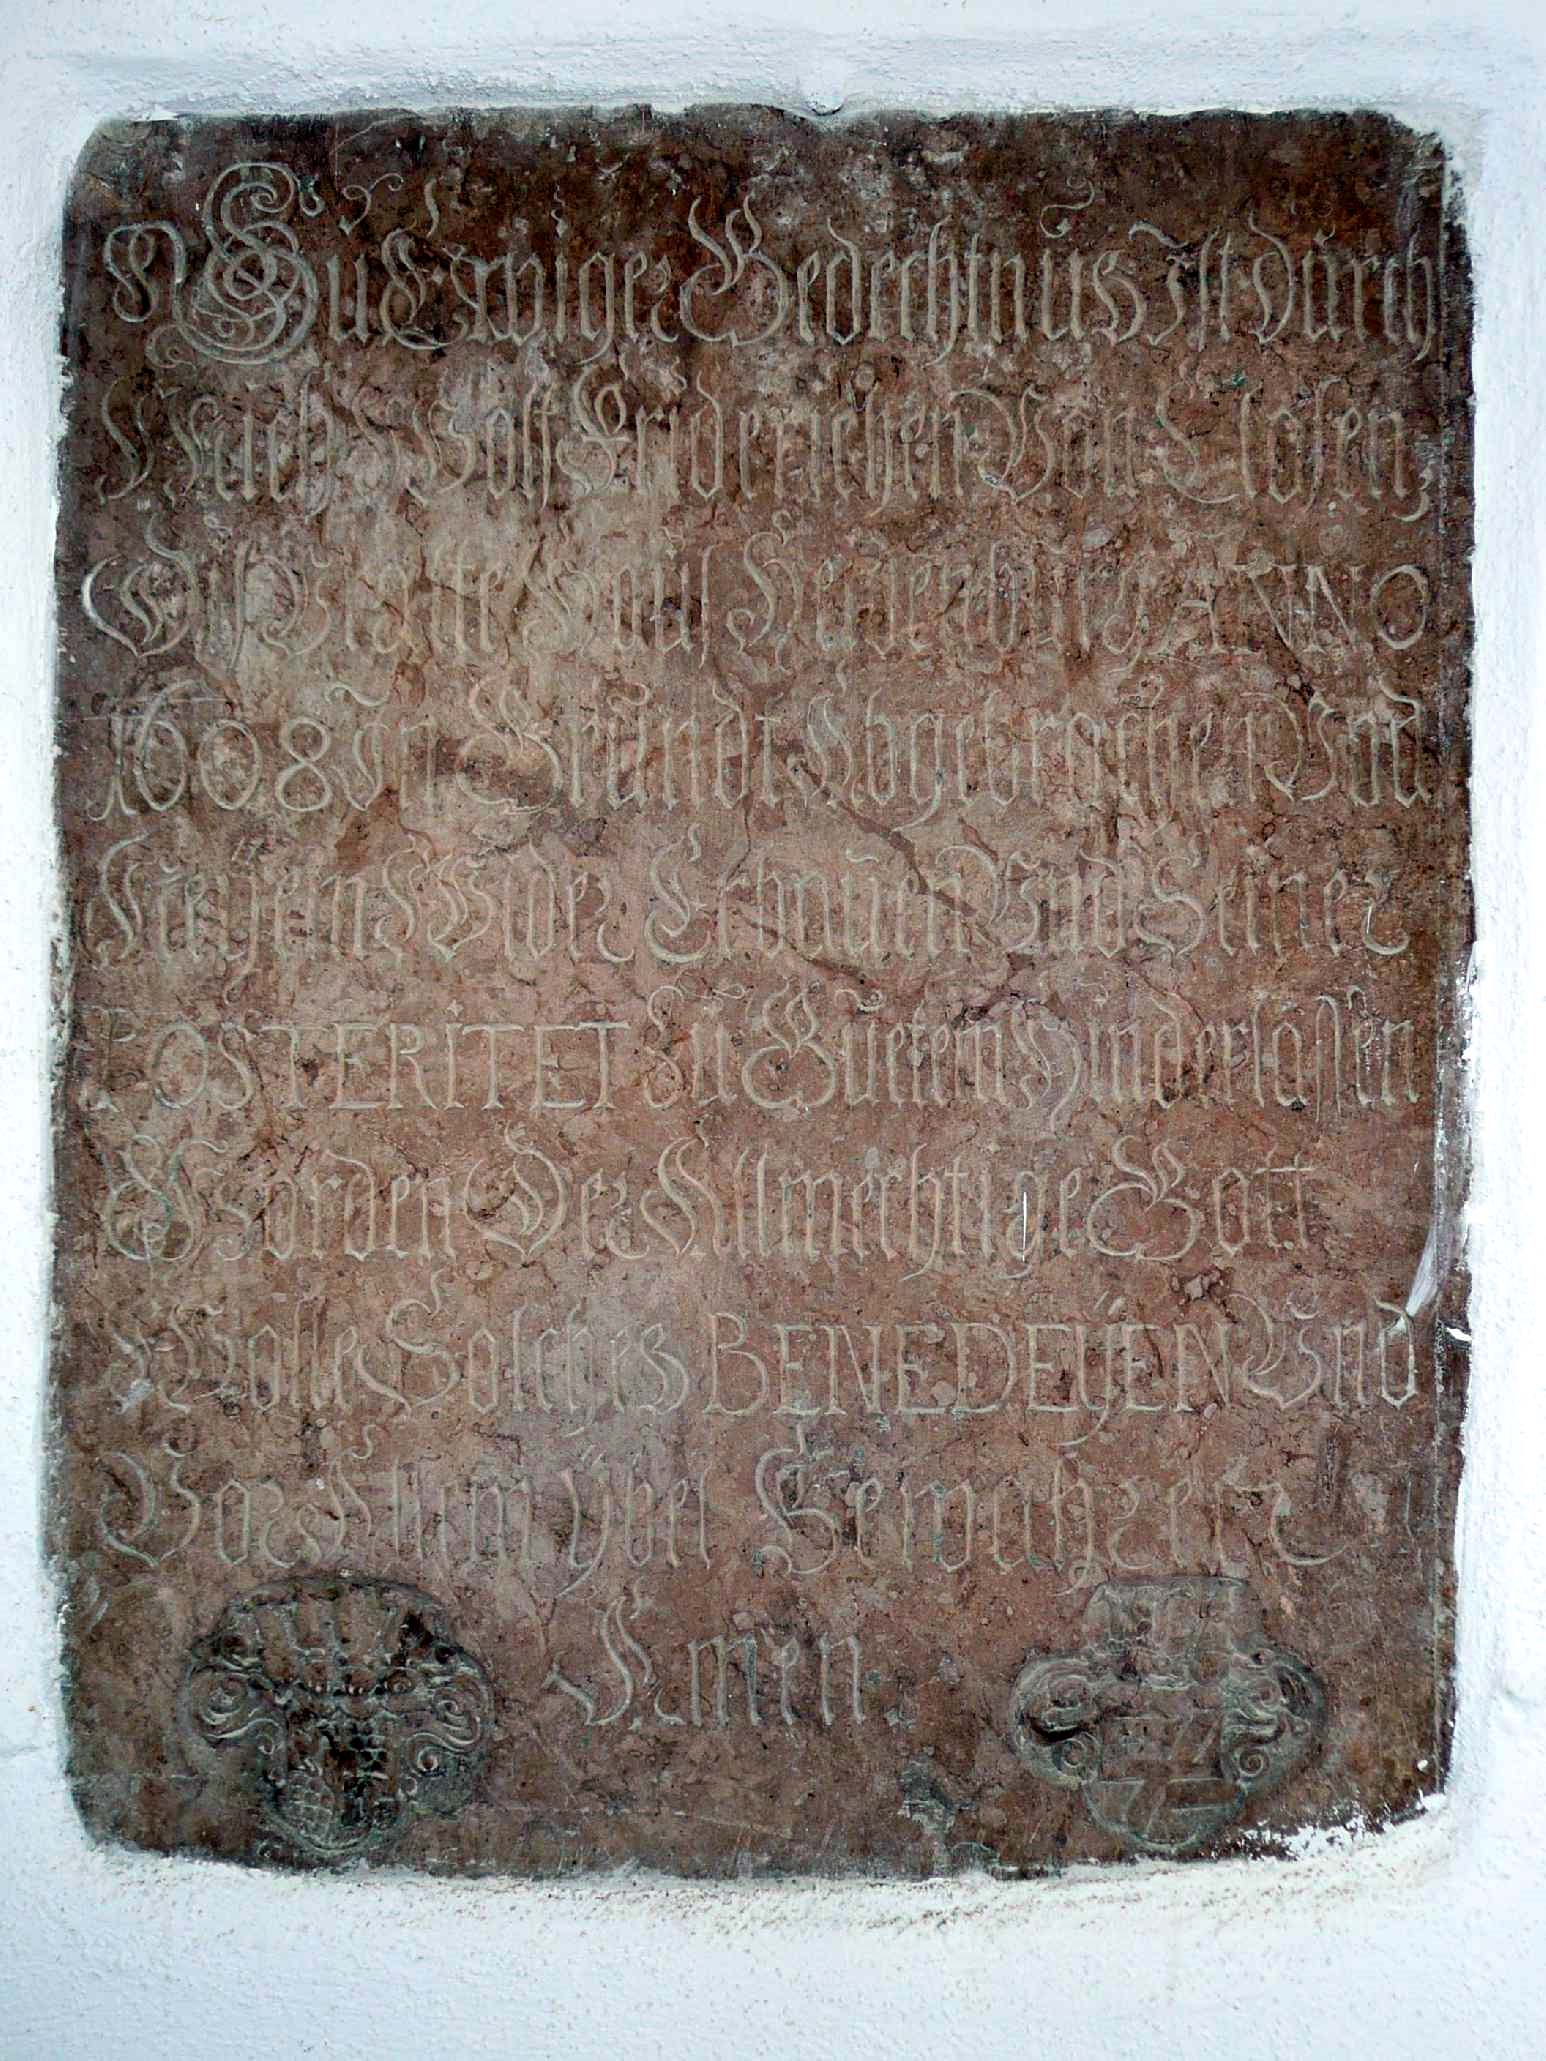 Zu Ewiger Gedechtnus Ist Durch
Mich Wolf Friderichen Von Closen
Dis Alte Haus Haidenburg ANNO
1608 In Grundt Abgebrochen Vnd
Wider Erbauen Vnd Seiner
POSTERITET Zu Guetem Hinderlassen
Worden Der Allmechtige Gott
Wolle Solches BENEDEYEN Vnd
Vor Allem ybel Bewahren
Amen.